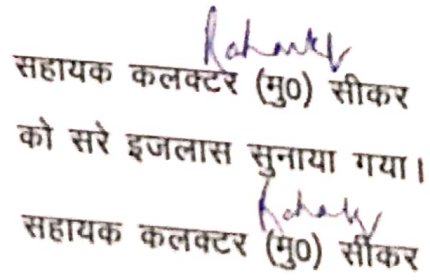 सहायक कलक्टर (मु0) सीकर
को सरे इजलास सुनाया गया।
सहायक कलक्टर (मु0) सीकर